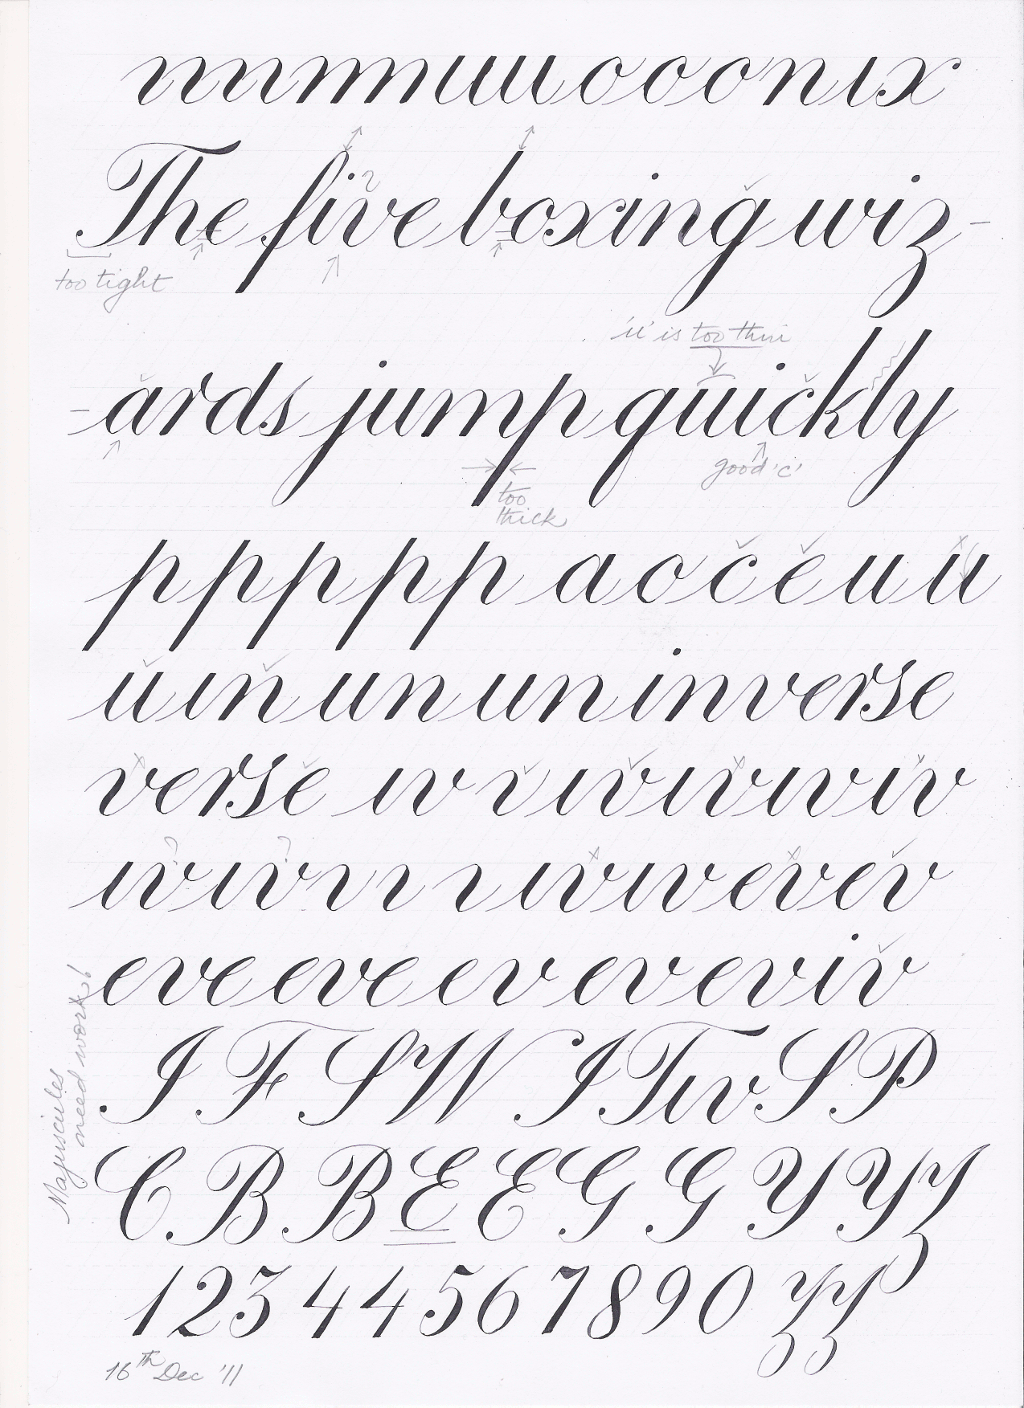 nnmuuooonix
The five boxing wiz-
too tight
'u' is too thin
-ards jump quickly
good 'c'
too
thick
ppppp aoceuu
u in un un inverse
verse iv v iv iv iv iv
eve eve ev ev ev iv
Majuscules
need work!
I F S W I T w S P
C B B E E G G Y Y z
1 2 3 4 4 5 6 7 8 9 0 z z
16th Dec '11